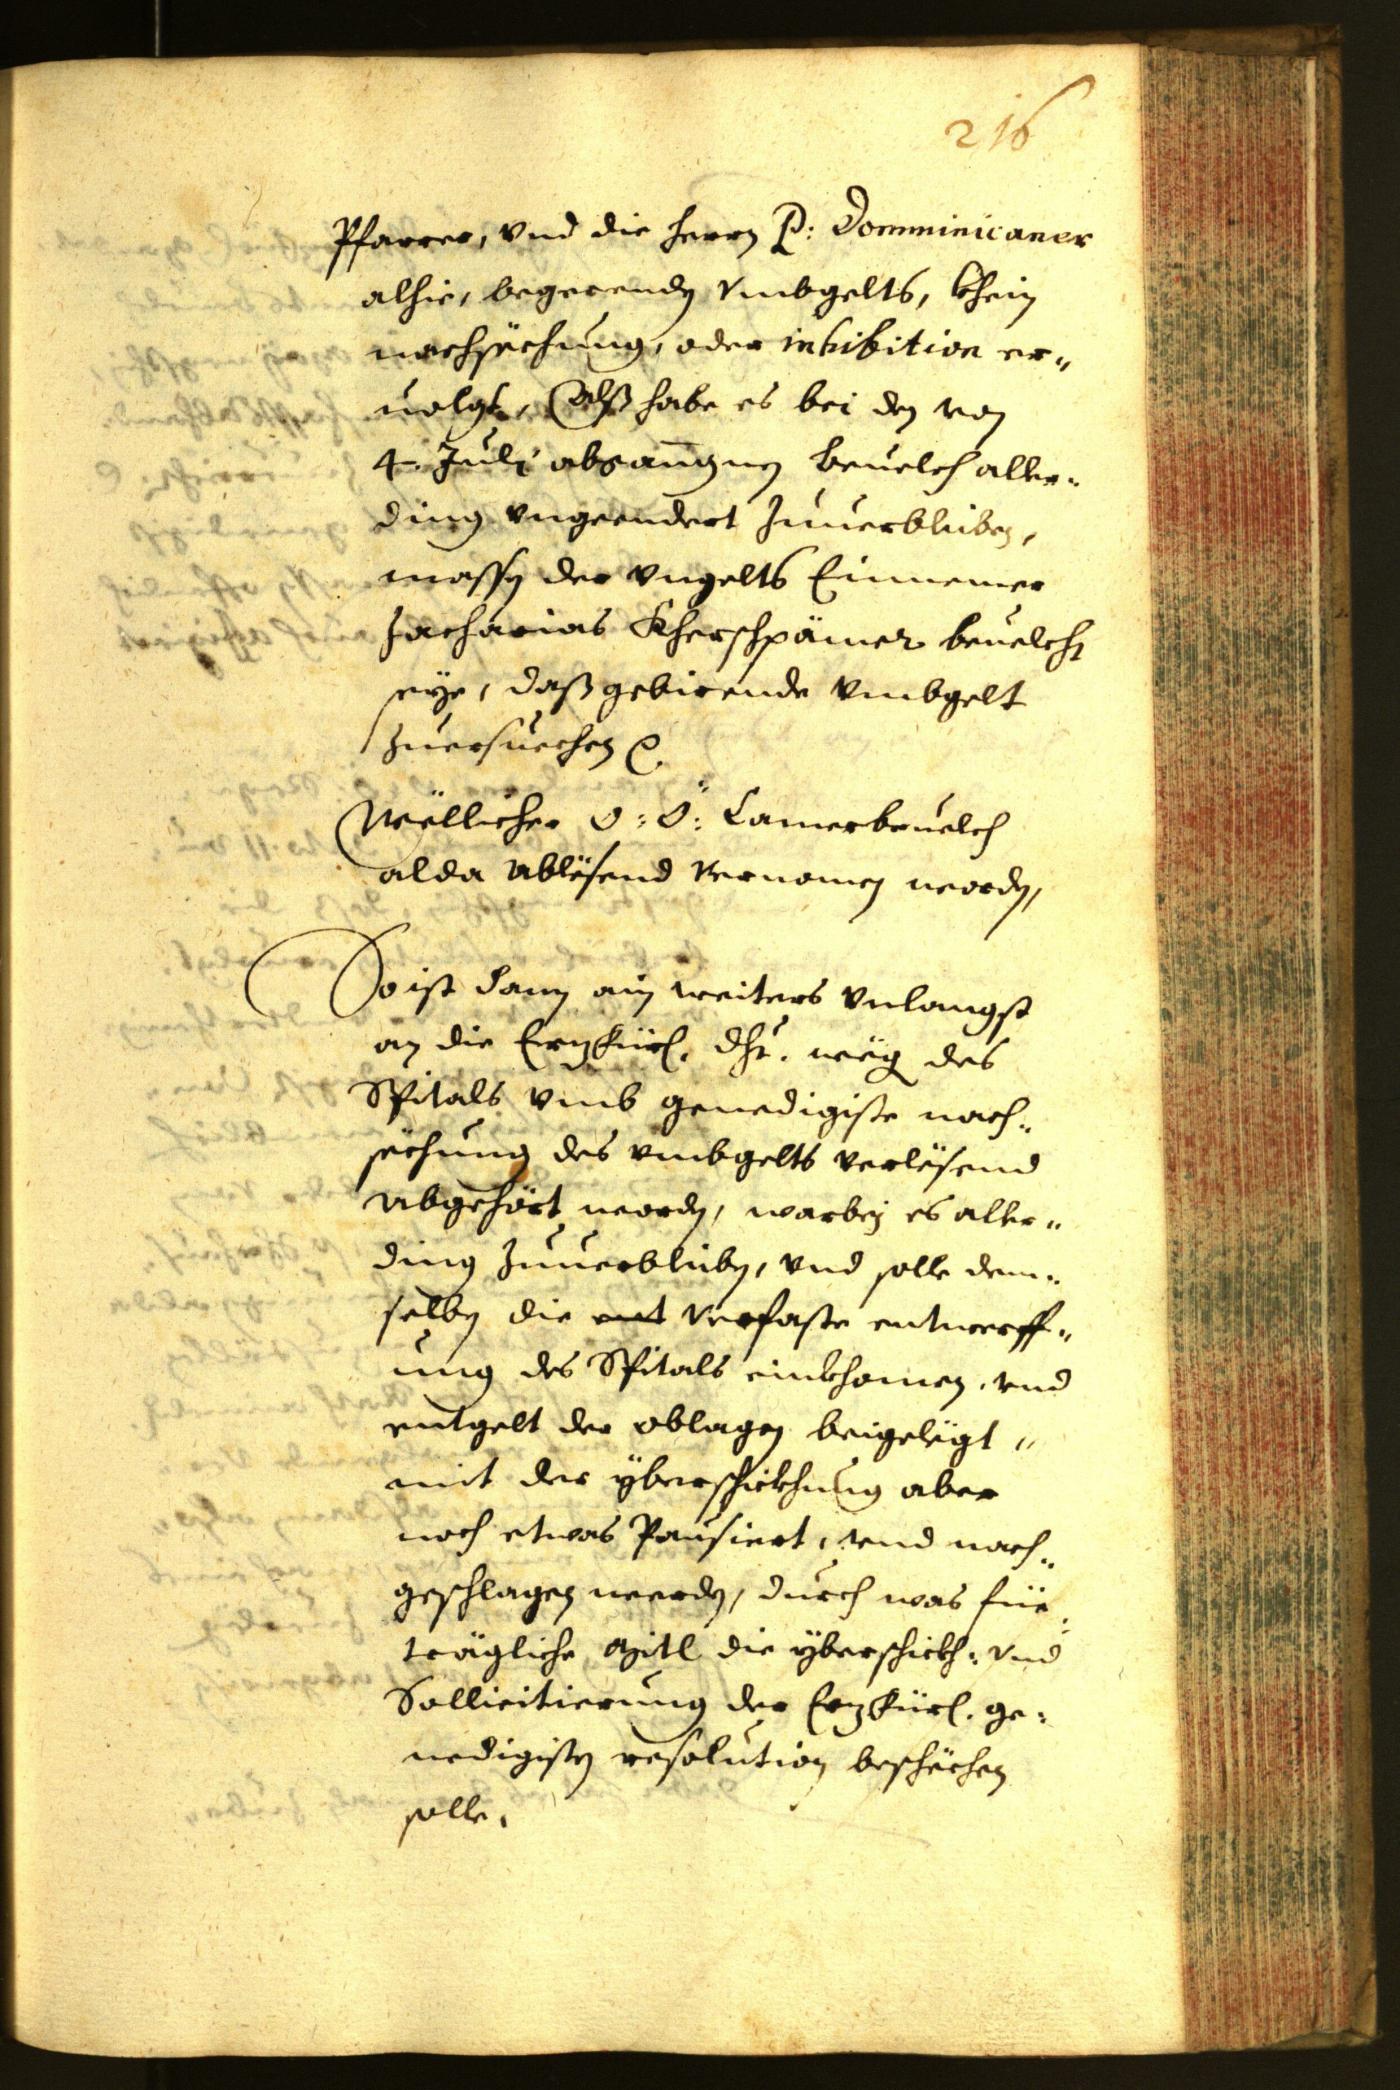 216
Pfarrer, vnd die herrn P: Domminicaner
alhie, begerenden vmbgelts, khein
nachsechung, oder inhibition er„
uolgt, Alß habe es bei den von
4. Julj abgangnen beuelch aller„
ding vngeendert zuuerbleiben,
massen der vngelts Einnemer
Zacharias Kherschpämer beuelcht
seye, daß gebirende vmbgelt
zuersuechen &.
Wellicher O: Ö: Camerbeuelch
alda ablesend vernomen worden,
So ist dann ain weiters vnlangst
an die Erzfürl. Dht. weg des
Spitals vmb genedigiste nach„
sechung des vmbgelts verlesend
abgehört worden, warbey es aller„
ding zuuerbleiben, vnd solle dem„
selben die ent verfaste entwerff„
ung des Spitals einkhomen, vnd
entgelt der oblagen beigelegt„
mit der yberschickhung aber
noch etwas Pausiert, vnd nach„
geschlagen werden, durch was für„
trägliche Mitl die yberschickh: vnd
Sollicitierung der Erzfürl. ge„
nedigisten resolution beschechen
solle.